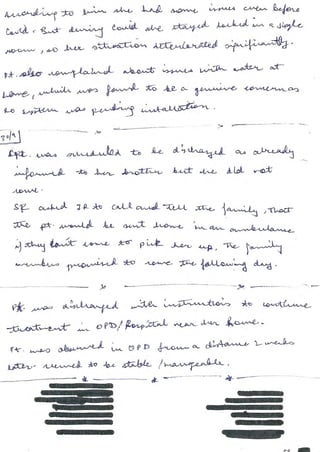 According to him she had some issues even before
Covid. But during Covid she stayed locked in a single
room, so her situation deteriorated significantly.
Pt. also complained about issues with water at
home, which was found to be a genuine concern as
RO system was pending installation.
30/9
Pt. was scheduled to be discharged as already
informed to her brother but he did not
come.
SR asked JR to call and tell the family, that
the pt would be sent home in an ambulance
if they don't come to pick her up. The family
members promised to come the following day.
Pt. was discharged with instructions to continue
treatment in OPD/hospital near her home.
Pt. was observed in OPD from a distance 2 weeks
later. seemed to be stable/manageable.